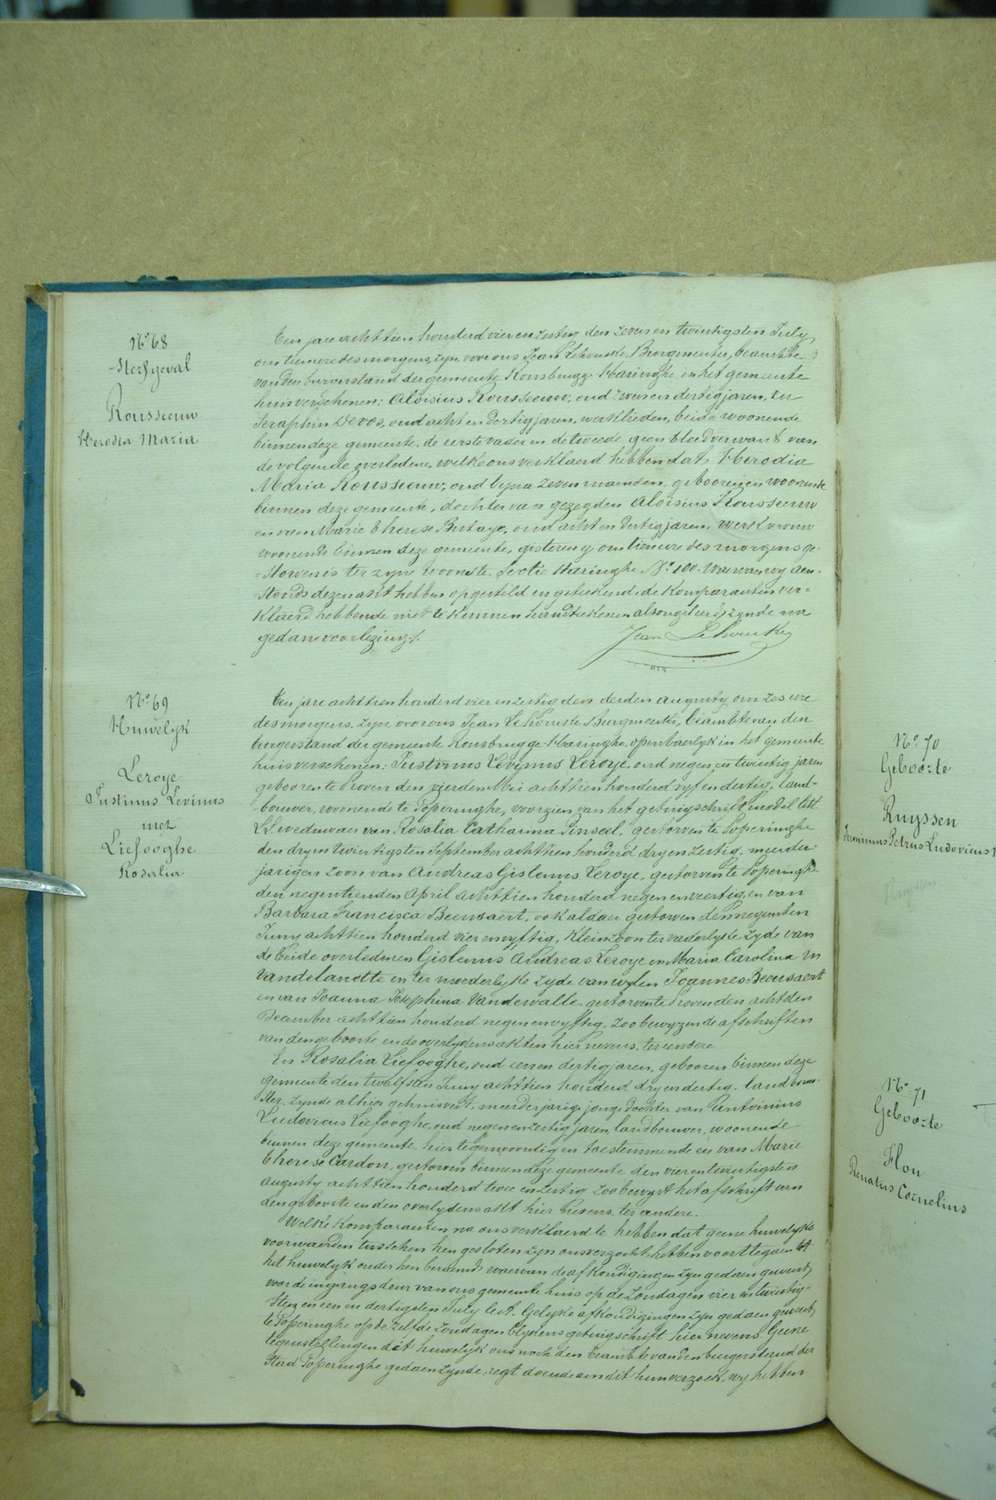 N° 68
Sterfgeval
Rousseeuw
Herodia Maria
Een jare achttien honderd vier en zestig, den zeven en twintigsten July,
om tien ure des morgens, zyn voor ons Jean Lehoucke, Burgmeester, beambte
van den burgerstand der gemeente Rousbrugge-Haringhe, in het gemeente
huis verschenen: Aloisius Rousseeuw, oud zeven en dertig jaren, en
Seraphin Devos, oud acht en dertig jaren, werklieden, beide woonende
binnen deze gemeente, de eerste vader en de tweede geen bloedverwant van
de volgende overledene, welke ons verklaard hebben dat Herodia
Maria Rousseeuw, oud byna zeven maanden, gebooren en woonende
binnen deze gemeente, dochter van gezegden Aloisius Rousseeuw
en van Marie Therese Butaye, oud acht en dertig jaren, werkvrouw
woonende binnen deze gemeente, gisteren om tien ure des morgens ge-
storven is ter zyne woonste, Sectie Haringhe N° 100. Waervan wy aen-
stonds dezen akt hebben opgesteld en geteekend, de komparanten ver-
klaerd hebbende niet te kunnen handteekenen alsongeleerd zynde na
gedane voorlezing.
Jean Lehoucke
N° 69
Huwelyk
Leroye
Justinus Levinus
met
Liefooghe
Rosalia
Een jare achttien honderd vier en zestig den derden augusty, om zes ure
des morgens, zyn voor ons Jean Lehoucke Burgmeester, beambte van den
burgerstand der gemeente Rousbrugge-Haringhe, openbaerlyk in het gemeente
huis verschenen: Justinus Levinus Leroye, oud negen en twintig jaren
gebooren te Proven den vierden mei achttien honderd vyf en dertig, land-
bouwer, woonende te Poperinghe, voorzien van het getuigschrift model litt
weduwaer van Rosalia Catharina Pinseel, gestorven te Poperinghe
den dry en twintigsten September achttien honderd dry en zestig, meerder
jarigen zoon van Andreas Gislenus Leroye, gestorven te Poperinghe
den negentienden April achttien honderd negen en veertig, en van
Barbara Francisca Beernaert, ook aldaer gestorven den negensten
Juny achttien honderd vier en vyftig, Kleinzoon ter vaderlyke zyde van
de beide overledenen Gislenus Andreas Leroye en Maria Carolina
Vandelanotte en ter moederlyke zyde van wylen Joannes Beernaert
en van Joanna Josephina Vandewalle, gestorven te Proven den achtsten
December achttien honderd negen en vyftig, zoo bewyzen de afschriften
van den geboorte en de overlydens akten hier nevens, ter eendere.
En Rosalia Liefooghe, oud een en dertig jaren, gebooren binnen deze
gemeente den twalfsten Juny achttien honderd dry en dertig, landbouw-
ster, zynde alhier gehuisvest, meerderjarige jonge dochter van Antoninus
Ludovicus Liefooghe, oud negen en zestig jaren, landbouwer, woonende
binnen deze gemeente, hier tegenwoordig en toestemmende en van Marie
Therese Cardon, gestorven binnen deze gemeente den vier en twintigsten
augusty achttien honderd twee en zestig zoo bewyst het afschrift van
den geboorte en den overlydens akt hier nevens, ter andere.
Welke komparanten na ons verklaerd te hebben dat geene huwelyks
voorwaerden tusschen hen gesloten zyn ons verzocht hebben voort te gaen tot
het huwelyk onder hen beraemd, waervan de afkondigingen zyn gedaen geweest
voor de ingangsdeur van ons gemeente huis op de zondagen vier en twintig-
sten en een en dertigsten July lest. Gelyke afkondigingen zyn gedaen geweest
te Poperinghe op de zelfde zondagen blykens getuigschrift hier nevens Geene
tegenstellingen dit huwelyk ons noch den beambte van den burgerstand der
stad Poperinghe gedaen zynde, regt doende aen dit hun verzoek, wy hebben
N° 70
Geboorte
Ruyssen
Petrus Ludovicus
Ruyssen
N° 71
Geboorte
Flou
Renatus Cornelius